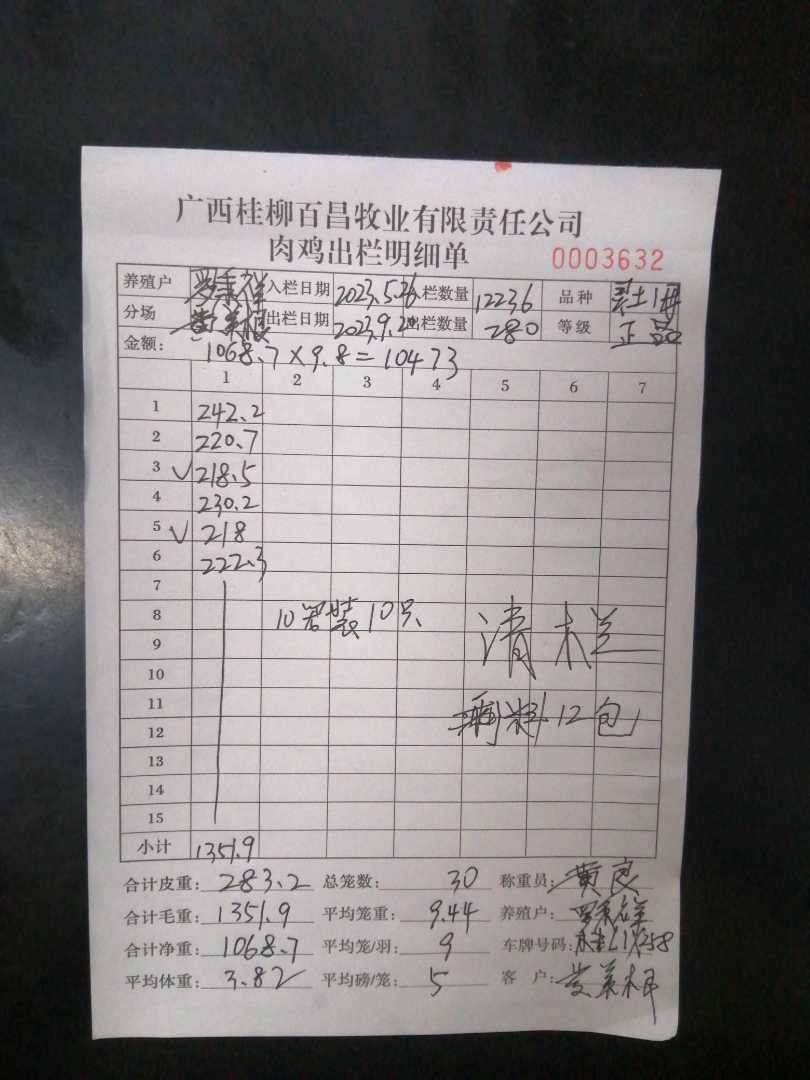 广西桂柳百昌牧业有限责任公司
肉鸡出栏明细单 0003632
养殖户 罗秉祥 入栏日期 2023.5.26 入栏数量 12236 品种
分场 出栏日期 2023.9.20 出栏数量 280 等级 正品
金额: 1068.7×9.8=10473
1 2 3 4 5 6 7
1 242.2
2 220.7
3 √ 218.5
4 230.2
5 √ 218
6 222.3
7
8 10笼装10只 清栏
9
10
11 剩料12包
12
13
14
15
小计 1351.9
合计皮重: 283.2 总笼数: 30 称重员: 黄良
合计毛重: 1351.9 平均笼重: 9.44 养殖户: 罗秉祥
合计净重: 1068.7 平均笼/羽: 9 车牌号码:
平均体重: 3.82 平均磅/笼: 5 客户: